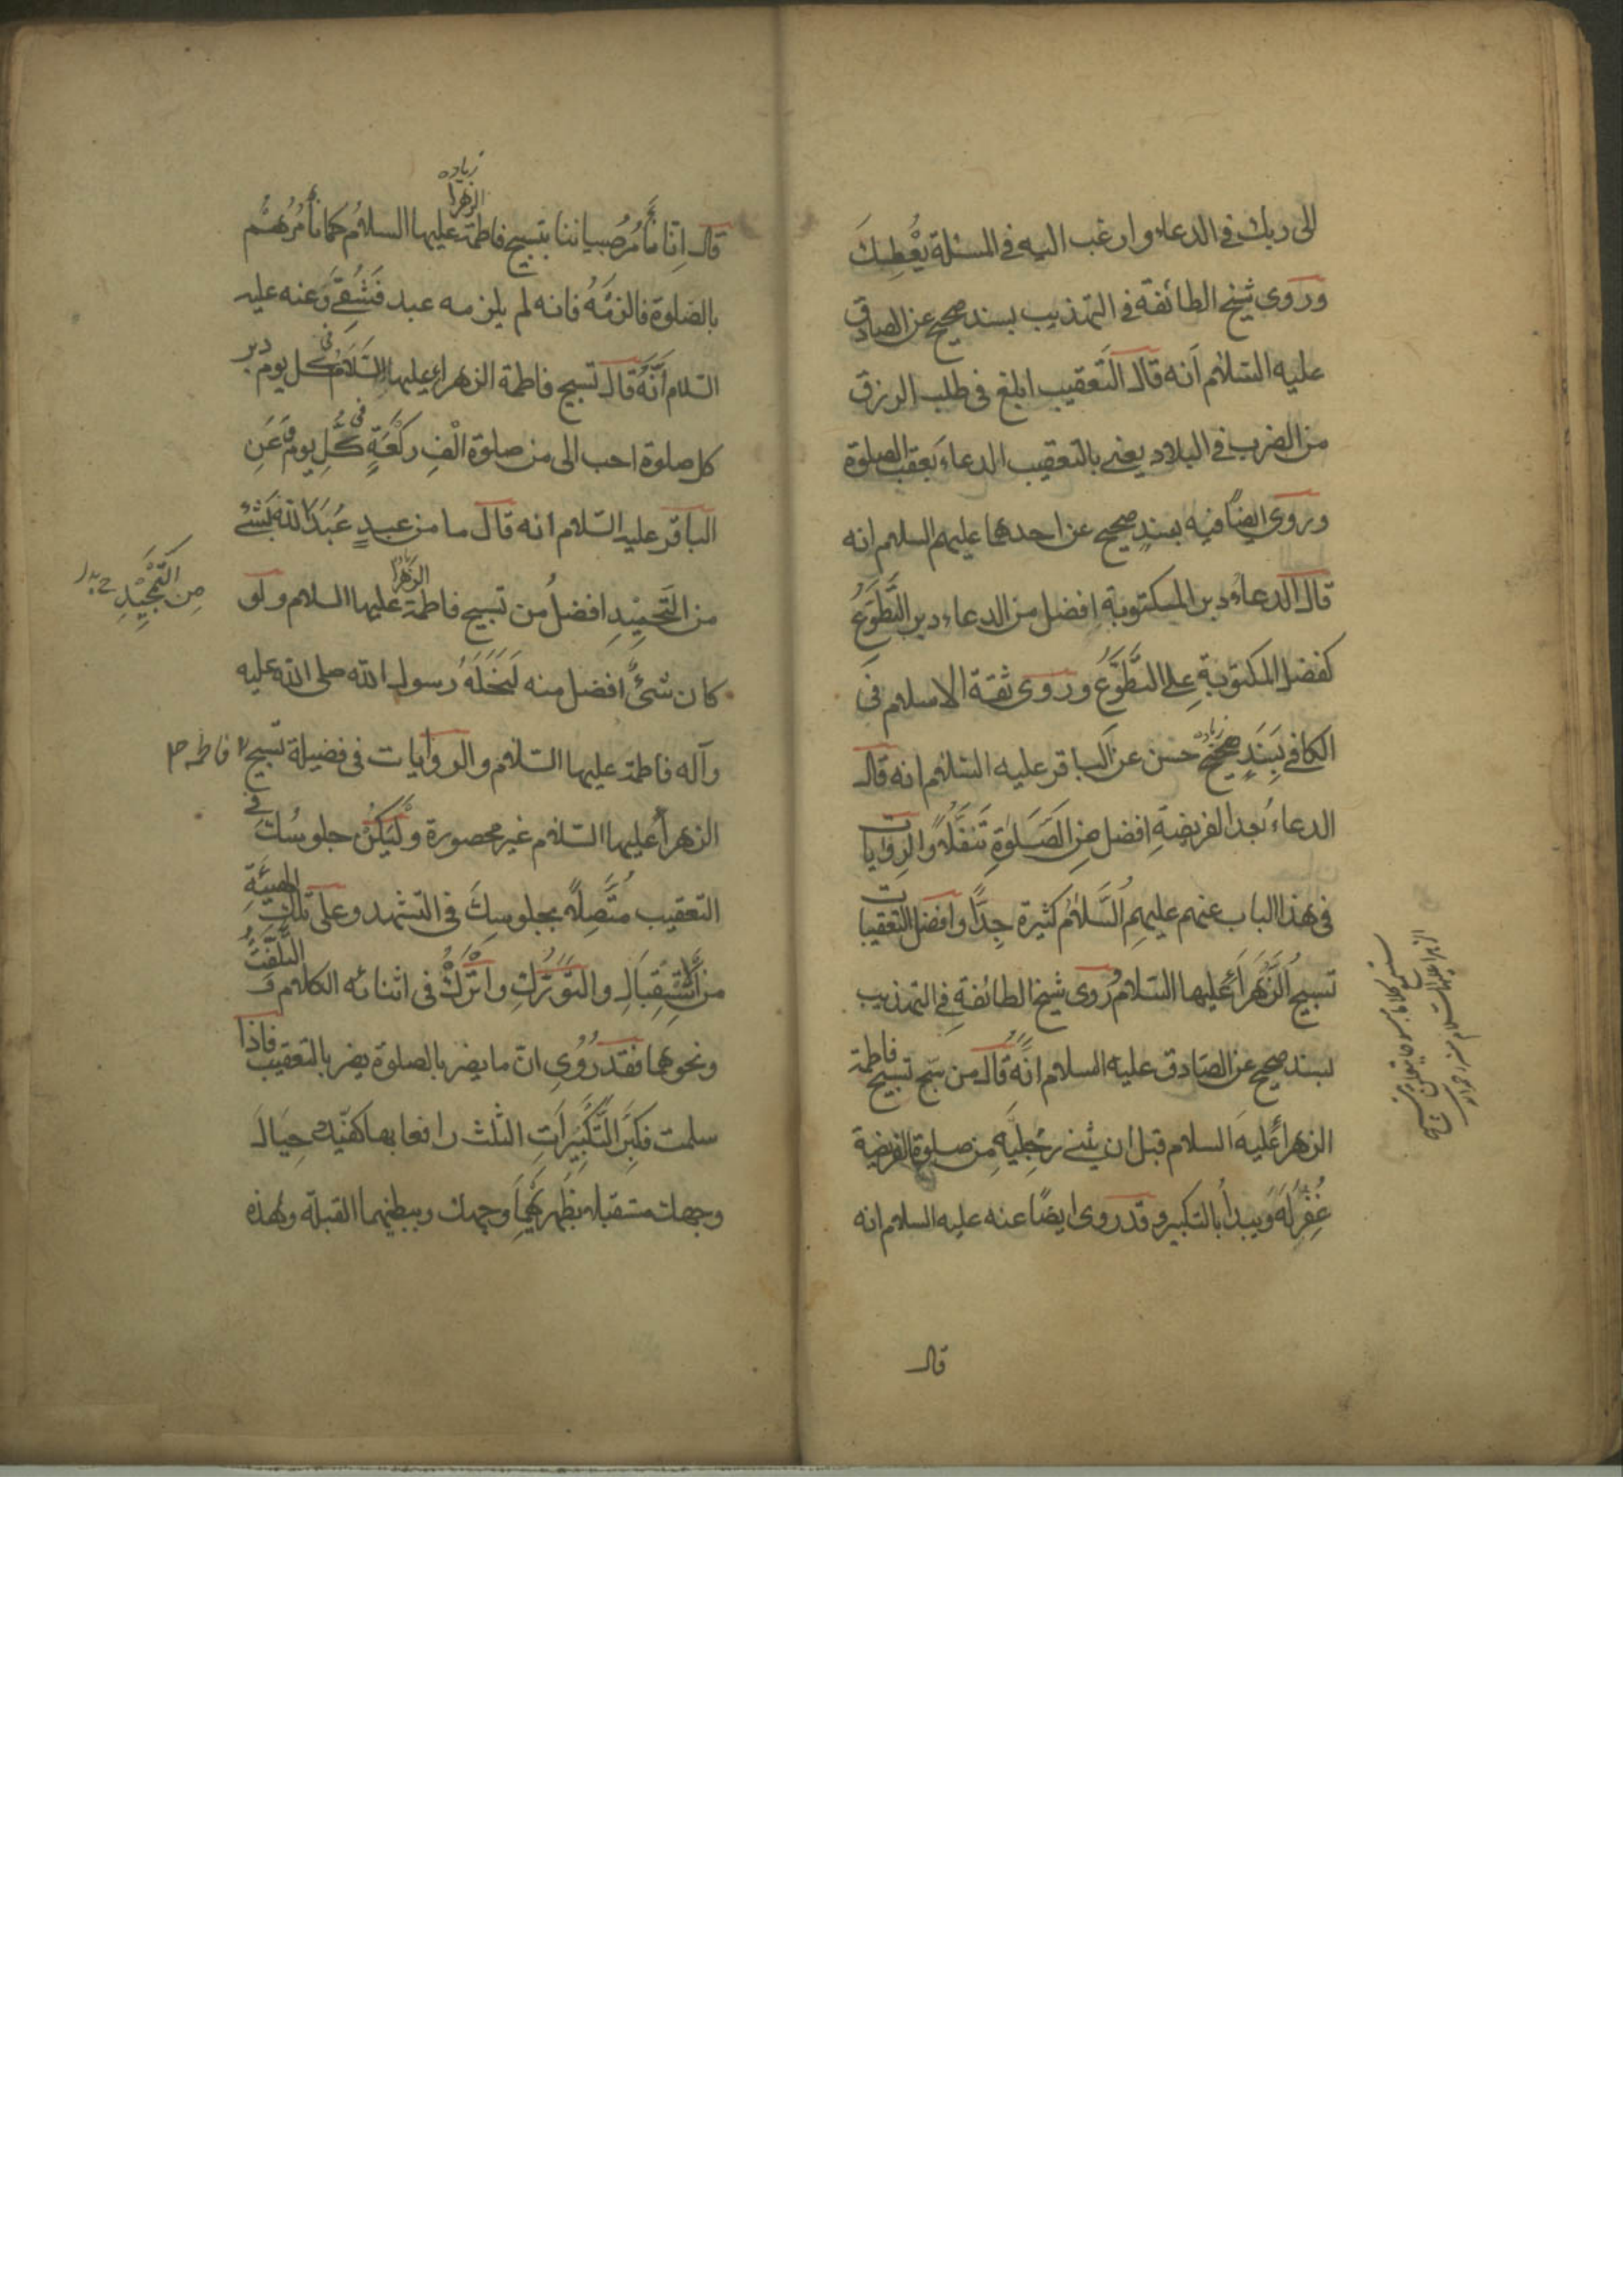 الى ربك في الدعاء وارغب اليه في المسئلة يُعْطِيكَ
وروى شيخ الطائفة في التهذيب بسند صحيح عن الصادق
عليه السّلام انه قال التَّعقيب ابلغ في طلب الرزق
من الضرب في البلاد يعني بالتعقيب الدعاءَ بعقب الصلوة
وروى ايضًا فيه بسندٍ صحيح عن احدهما عليهم السلام انه
قال الدعاءُ دبر المكتوبةِ افضل من الدعاء دبر التَّطَوُّعِ
كفضل المكتوبةِ على التَّطَوُّعِ وروى ثقة الاسلام في
الكافي بِسَنَدٍ صحيح حسن عن الباقر عليه السّلام انه قال
زياده
الدعاءُ بعد الفريضةِ افضل مِن الصَّلوٰةِ تَنَفُّلًا والرِّوايات
في هذا الباب عنهم عليهِمُ السَّلامُ كثيرة جِدًّا وافضل التعقيبات
تسبيحُ الزَّهراءِ عليها السّلام رَوى شيخ الطائفةِ في التهذيب
بسند صحيح عن الصّادق عليه السلام انَّهُ قال من سبّح تسبيح فاطمة
الزهراءِ عليه السلام قبل ان يثني رِجليهِ من صلوة الفريضة
غُفِرَ لَهُ وَيبدأُ بالتكبير وقد روى ايضًا عنه عليه السلام انه
قال
قال اِنّا نَأْمُرُ صبياننا بتسبيح فاطمة عليها السلامُ كما نَأْمُرُهُمْ
الزهرا
زياده
بالصّلوة فالزمْهُ فانه لم يلزمه عبد فَشَقِيَ وَعنه عليه
السّلام أَنَّهُ قال تسبيح فاطمة الزهراء عليها السَّلَامُ في كل يوم دبر
كل صلوة احب الى من صلوة اَلْفِ رَكْعَةٍ في كُلِّ يومٍ وَعَنِ
الباقر عليه السّلام انه قال ما من عبدٍ عَبَدَ اللّٰهَ بِشَيْءٍ
من التَّحميدِ افضلُ من تسبيح فاطمة عليها السلام ولو
الزهرا
مِن التَّمجِيْدِ
كان شَيْءٌ افضل منه لَنَحَلَهُ رسول الله صلى الله عليه
وآله فاطمة عليها السّلام والروايات في فضيلة تسبيح
فاطمه
الزهراءِ عليها السّلام غير محصورة وَلْيَكُنْ جلوسُكَ في
التعقيب مُتَّصِلًا بجلوسِكَ في التشهد وعلى تلك الهيئةِ
من الاستقبالِ والتَّوَرُّكِ واتْرُكْ في اثنائه الكلام و التَّلَفُّتَ
ونحوهما فقد رُوِيَ انّ ما يضر بالصلوة يضر بالتعقيب فاذا
سلمت فكبِّر التَّكبيراتِ الثلث رافعا بها كفّيك حِيَالَ
وجهك مستقبلا بِظَهرَيهِما وجهك وببطنهما القبلة وهذه